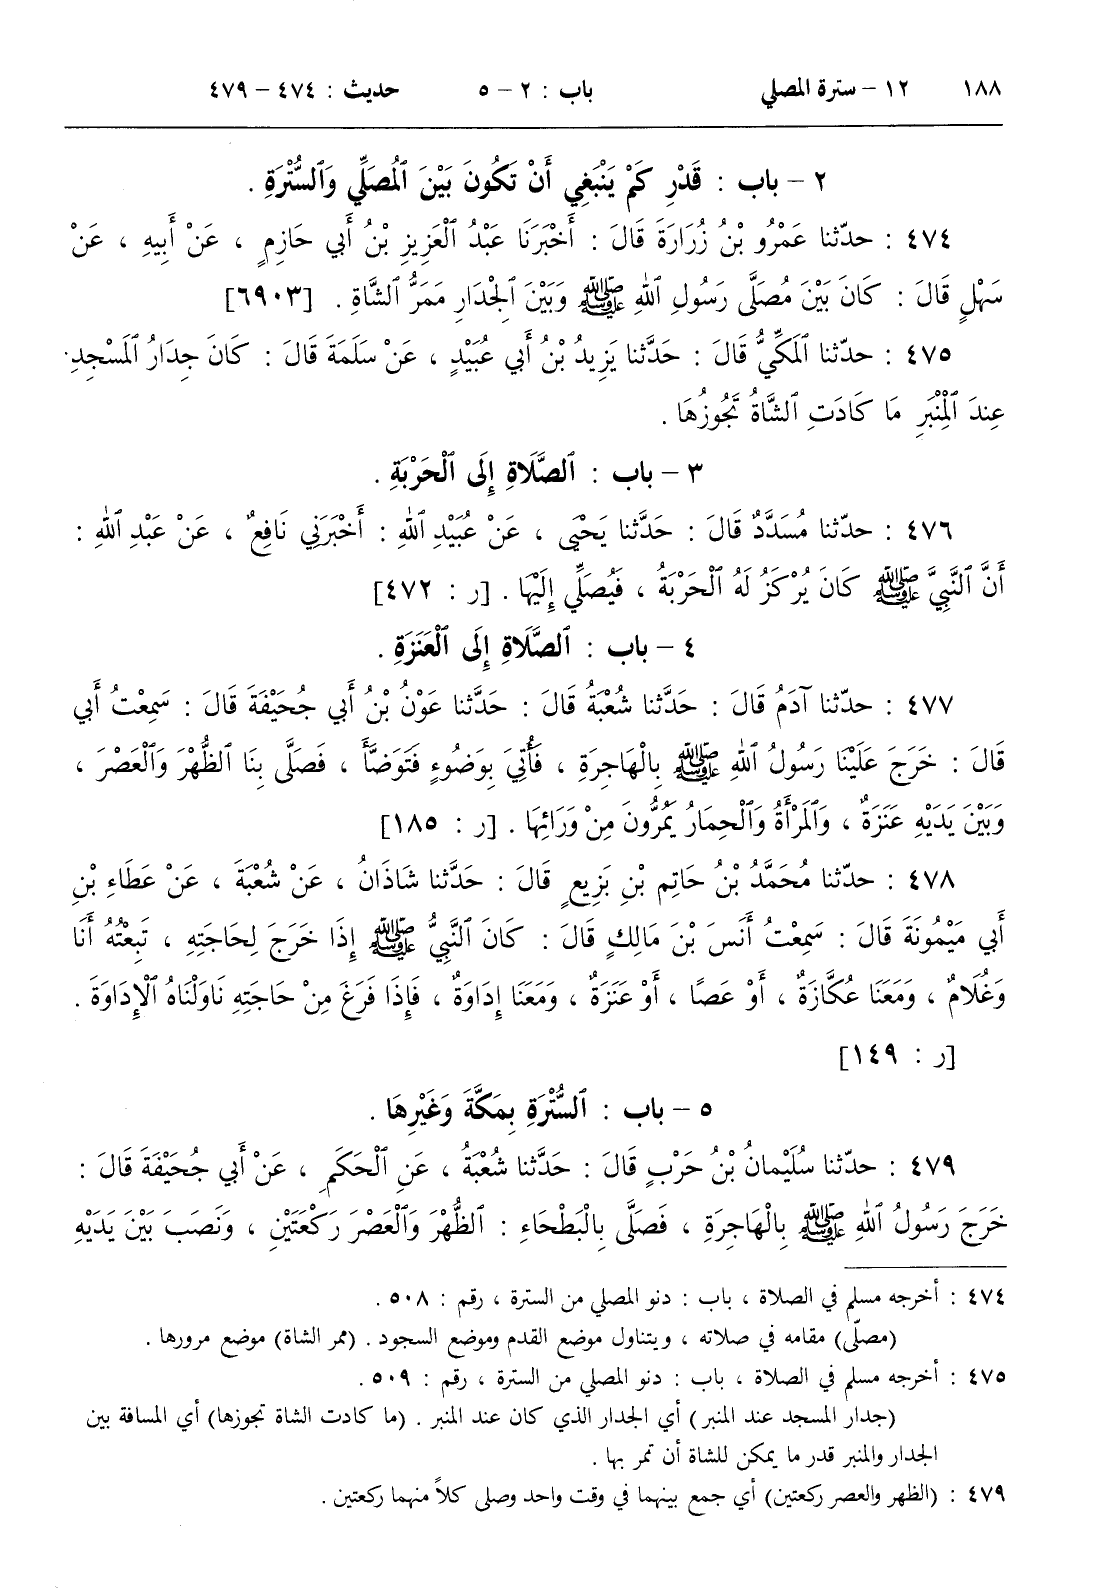 ١٨٨ ١٢ – سترة المصلي باب : ٢ – ٥ حديث : ٤٧٤ – ٤٧٩
٢ – باب : قَدْرِ كَمْ يَنْبَغِي أَنْ تَكُونَ بَيْنَ ٱلْمُصَلِّي وَٱلسُّتْرَةِ .
٤٧٤ : حدّثنا عَمْرُو بْنُ زُرَارَةَ قَالَ : أَخْبَرَنَا عَبْدُ ٱلْعَزِيزِ بْنُ أَبِي حَازِمٍ ، عَنْ أَبِيهِ ، عَنْ
سَهْلٍ قَالَ : كَانَ بَيْنَ مُصَلَّى رَسُولِ ٱللهِ ﷺ وَبَيْنَ ٱلْجْدَارِ مَمَرُّ ٱلشَّاةِ . [٦٩٠٣]
٤٧٥ : حدّثنا ٱلْمَكِّيُّ قَالَ : حَدَّثنا يَزِيدُ بْنُ أَبِي عُبَيْدٍ ، عَنْ سَلَمَةَ قَالَ : كَانَ جِدَارُ ٱلْمَسْجِدِ
عِندَ ٱلْمِنْبَرِ مَا كَادَتِ ٱلشَّاةُ تَجُوزُهَا .
٣ – باب : ٱلصَّلَاةِ إِلَى ٱلْحَرْبَةِ .
٤٧٦ : حدّثنا مُسَدَّدٌ قَالَ : حَدَّثنا يَحْيَى ، عَنْ عُبَيْدِ ٱللهِ : أَخْبَرَنِي نَافِعٌ ، عَنْ عَبْدِ ٱللهِ :
أَنَّ ٱلنَّبِيَّ ﷺ كَانَ يُرْكَزُ لَهُ ٱلْحَرْبَةُ ، فَيُصَلِّي إِلَيْهَا . [ر : ٤٧٢]
٤ – باب : ٱلصَّلَاةِ إِلَى ٱلْعَنَزَةِ .
٤٧٧ : حدّثنا آدَمُ قَالَ : حَدَّثنا شُعْبَةُ قَالَ : حَدَّثنا عَوْنُ بْنُ أَبِي جُحَيْفَةَ قَالَ : سَمِعْتُ أَبِي
قَالَ : خَرَجَ عَلَيْنَا رَسُولُ ٱللهِ ﷺ بِالْهَاجِرَةِ ، فَأُتِيَ بِوَضُوءٍ فَتَوَضَّأَ ، فَصَلَّى بِنَا ٱلظُّهْرَ وَٱلْعَصْرَ ،
وَبَيْنَ يَدَيْهِ عَنَزَةٌ ، وَٱلْمَرْأَةُ وَٱلْحِمَارُ يَمُرُّونَ مِنْ وَرَائِهَا . [ر : ١٨٥]
٤٧٨ : حدّثنا مُحَمَّدُ بْنُ حَاتِمِ بْنِ بَزِيعٍ قَالَ : حَدَّثنا شَاذَانُ ، عَنْ شُعْبَةَ ، عَنْ عَطَاءِ بْنِ
أَبِي مَيْمُونَةَ قَالَ : سَمِعْتُ أَنَسَ بْنَ مَالِكٍ قَالَ : كَانَ ٱلنَّبِيُّ ﷺ إِذَا خَرَجَ لِحَاجَتِهِ ، تَبِعْتُهُ أَنَا
وَغُلَامٌ ، وَمَعَنَا عُكَّازَةٌ ، أَوْ عَصًا ، أَوْ عَنَزَةٌ ، وَمَعَنَا إِدَاوَةٌ ، فَإِذَا فَرَغَ مِنْ حَاجَتِهِ نَاوَلْنَاهُ ٱلْإِدَاوَةَ .
[ر : ١٤٩]
٥ – باب : ٱلسُّتْرَةِ بِمَكَّةَ وَغَيْرِهَا .
٤٧٩ : حدّثنا سُلَيْمانُ بْنُ حَرْبٍ قَالَ : حَدَّثنا شُعْبَةُ ، عَنِ ٱلْحَكَمِ ، عَنْ أَبِي جُحَيْفَةَ قَالَ :
خَرَجَ رَسُولُ ٱللهِ ﷺ بِالْهَاجِرَةِ ، فَصَلَّى بِالْبَطْحَاءِ : ٱلظُّهْرَ وَٱلْعَصْرَ رَكْعَتَيْنِ ، وَنَصَبَ بَيْنَ يَدَيْهِ
٤٧٤ : أخرجه مسلم في الصلاة ، باب : دنو المصلي من السترة ، رقم : ٥٠٨ .
(مصلّى) مقامه في صلاته ، ويتناول موضع القدم وموضع السجود . (ممر الشاة) موضع مرورها .
٤٧٥ : أخرجه مسلم في الصلاة ، باب : دنو المصلي من السترة ، رقم : ٥٠٩ .
(جدار المسجد عند المنبر) أي الجدار الذي كان عند المنبر . (ما كادت الشاة تجوزها) أي المسافة بين
الجدار والمنبر قدر ما يمكن للشاة أن تمر بها .
٤٧٩ : (الظهر والعصر ركعتين) أي جمع بينهما في وقت واحد وصلى كلاً منهما ركعتين .